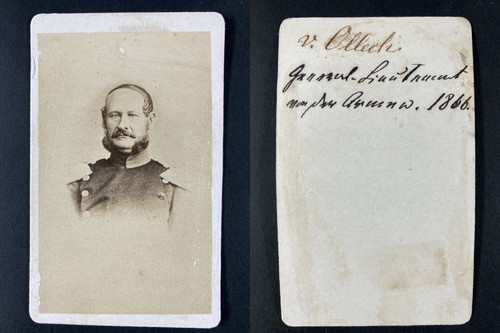 v. Ollech
General-Lieutenant
von der Armee. 1866.